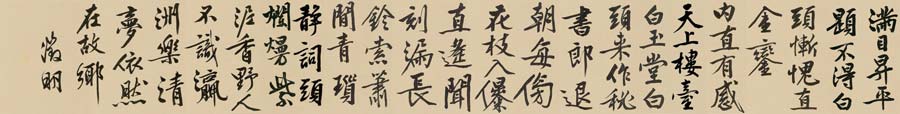 滿目昇平
題不得白
頭慚愧直
金鑾
內直有感
天上樓臺
白玉堂白
頭來作秘
書郎退
朝每傍
花枝入儤
直遙聞
刻漏長
鈴索蕭
閒青瑣
靜詞頭
爛熳紫
泥香野人
不識瀛
洲樂清
夢依然
在故鄉
徵明